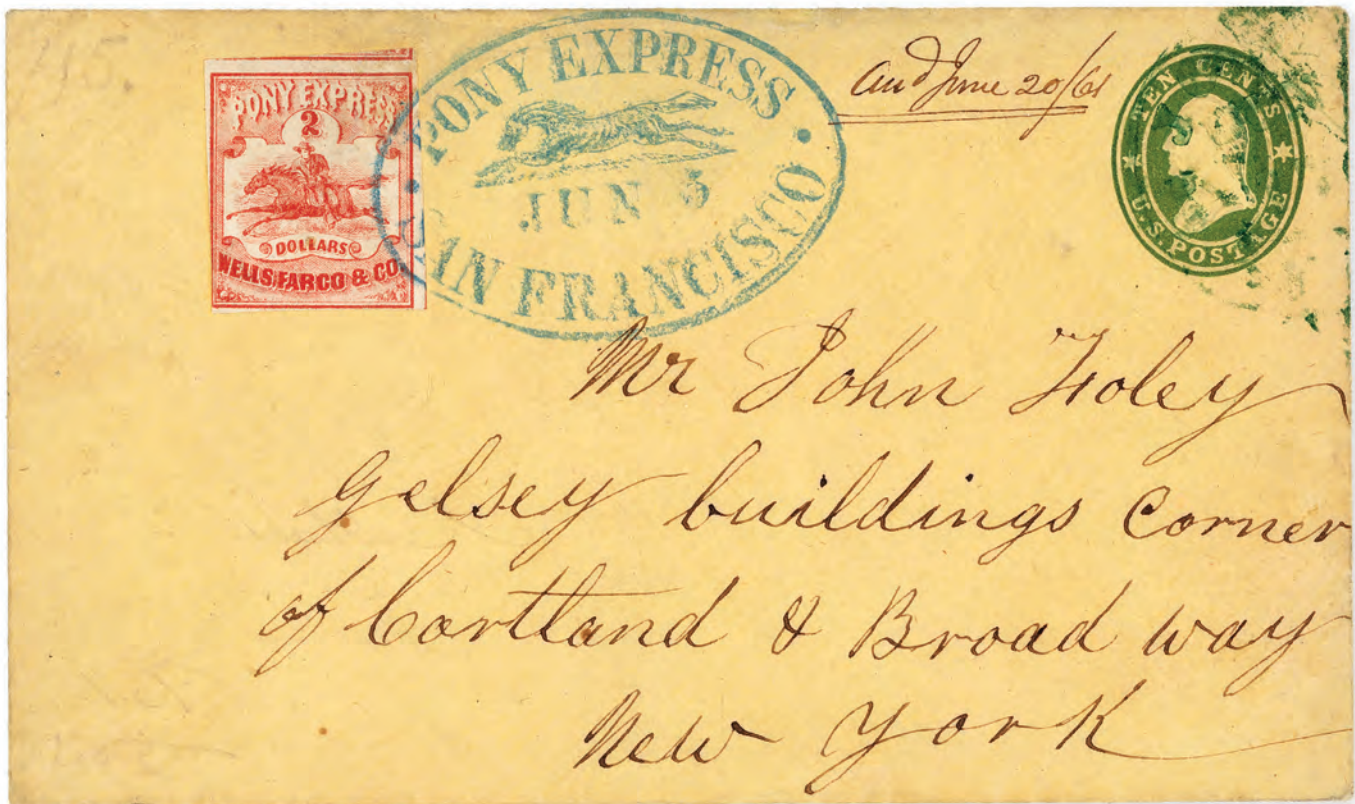 PONY EXPRESS
2
DOLLARS
WELLS, FARGO & CO
PONY EXPRESS
JUN 5
SAN FRANCISCO
June 20/61
TEN CENTS
U.S. POSTAGE
Mr John Foley
Gelsey buildings Corner
of Cortland & Broad way
New York